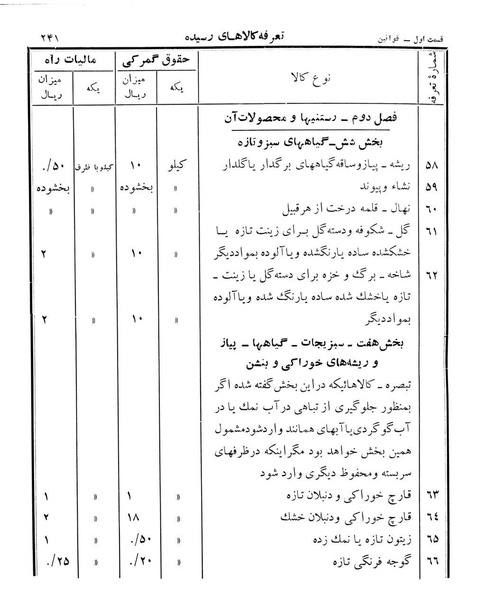 قسمت اول ـ قوانین تعرفه کالاهای رسیده ۲۴۱
شمارهٔ تعرفه نوع کالا حقوق گمرکی مالیات راه
یکه میزان ریال یکه میزان ریال
فصل دوم ـ رستنیها و محصولات آن
بخش شش ـ گیاههای سبز و تازه
۵۸ ریشه ـ پیاز و ساقه گیاههای برگدار یا گلدار کیلو ۱۰ کیلو با ظرف ۵۰/.
۵۹ نشاء و پیوند » بخشوده » بخشوده
۶۰ نهال ـ قلمه درخت از هر قبیل » » » »
۶۱ گل ـ شکوفه و دسته گل برای زینت تازه یا
خشکشده ساده یا رنگشده و یا آلوده بمواد دیگر » ۱۰ » ۲
۶۲ شاخه ـ برگ و خزه برای دسته گل یا زینت ـ
تازه یا خشك شده ساده یا رنگ شده و یا آلوده
بمواد دیگر » ۱۰ » ۲
بخش هفت ـ سبزیجات ـ گیاهها ـ پیاز
و ریشه‌های خوراکی و بنشن
تبصره ـ کالاهائیکه در این بخش گفته شده اگر
بمنظور جلوگیری از تباهی در آب نمك یا در
آب گوگردی یا آبهای همانند وارد شود مشمول
همین بخش خواهد بود مگر اینکه در ظرفهای
سربسته و محفوظ دیگری وارد شود
۶۳ قارچ خوراکی و دنبلان تازه » ۱ » ۱
۶۴ قارچ خوراکی و دنبلان خشك » ۱۸ » ۲
۶۵ زیتون تازه یا نمك زده » ۵۰/. » ۱
۶۶ گوجه فرنگی تازه » ۲۰/. » ۲۵/.